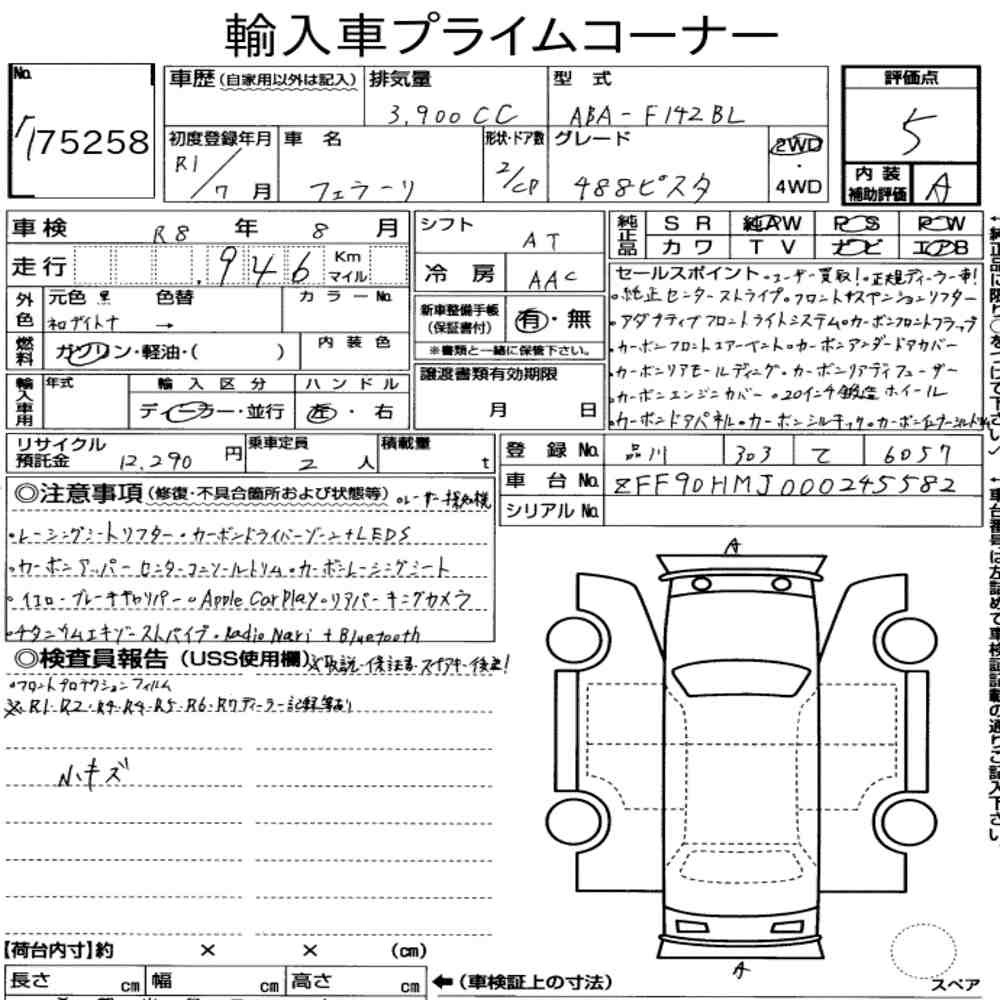 輸入車プライムコーナー
No. 75258
車歴(自家用以外は記入) 排気量 3,900CC 型式 ABA-F142BL
初度登録年月 R1/7月 車名 フェラーリ 形状・ドア数 2/CP グレード 488ピスタ 2WD・4WD
評価点 5
内装補助評価 A
車検 R8年 8月
走行 .946 Km マイル
外色 元色 黒 色替 カラーNo.
→
燃料 ガソリン・軽油・( ) 内装色
輸入車用 年式 輸入区分 ディーラー・並行 ハンドル 左・右
シフト AT
冷房 AAC
新車整備手帳(保証書付) 有・無
※書類と一緒に保管下さい。
譲渡書類有効期限 月 日
純正品 SR 純AW PS PW
カワ TV ナビ エアB
セールスポイント ・ユーザー買取!・正規ディーラー車!
・純正センターストライプ・フロントサスペンションリフター
・アダプティブフロントライトシステム・カーボンフロントフラップ
・カーボンフロントエアーベント・カーボンアンダードアカバー
・カーボンリアモールディング・カーボンリアディフューザー
・カーボンエンジンカバー・20インチ鍛造ホイール
・カーボンドアパネル・カーボンシルキック・カーボン
リサイクル預託金 12,290円 乗車定員 2人 積載量 t
登録No. 品川 303 て 6057
車台No. ZFF90HMJ000245582
シリアルNo.
◎注意事項(修復・不具合箇所および状態等)・レーザー探知機
・レーシングシートリフター・カーボンドライバーゾーン+LEDS
・カーボンアッパーセンターコンソールトリム・カーボンレーシングシート
・イエローブレーキキャリパー・Apple CarPlay・リアパーキングカメラ
・チタニウムエキゾーストパイプ・Radio Navi + Bluetooth
◎検査員報告(USS使用欄)※取説・保証書・スペアキー後送!
・フロントプロテクションフィルム
※R1・R2・R4・R4・R5・R6・R7ディーラー記録簿有り
小キズ
A
A
【荷台内寸】約 × × (cm)
長さ cm 幅 cm 高さ cm ←(車検証上の寸法)
スペア
↑純正品に限り○をつけて下さい
↑車台番号は左詰めで車検証記載の通りご記入下さい。